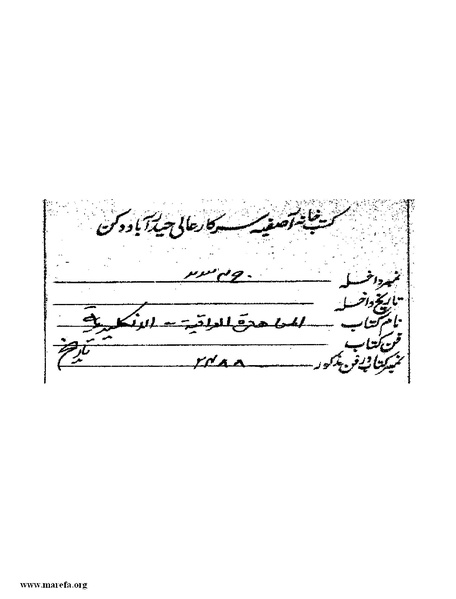 کتب خانہ آصفیہ سرکار عالی حیدرآباد دکن
نمبر داخلہ
تاریخ داخلہ
نام کتاب المعاهدة العراقية - الانكليزية
فن کتاب تاریخ
نمبر کتاب در فن مذکور ۲۴۸۸
www.marefa.org